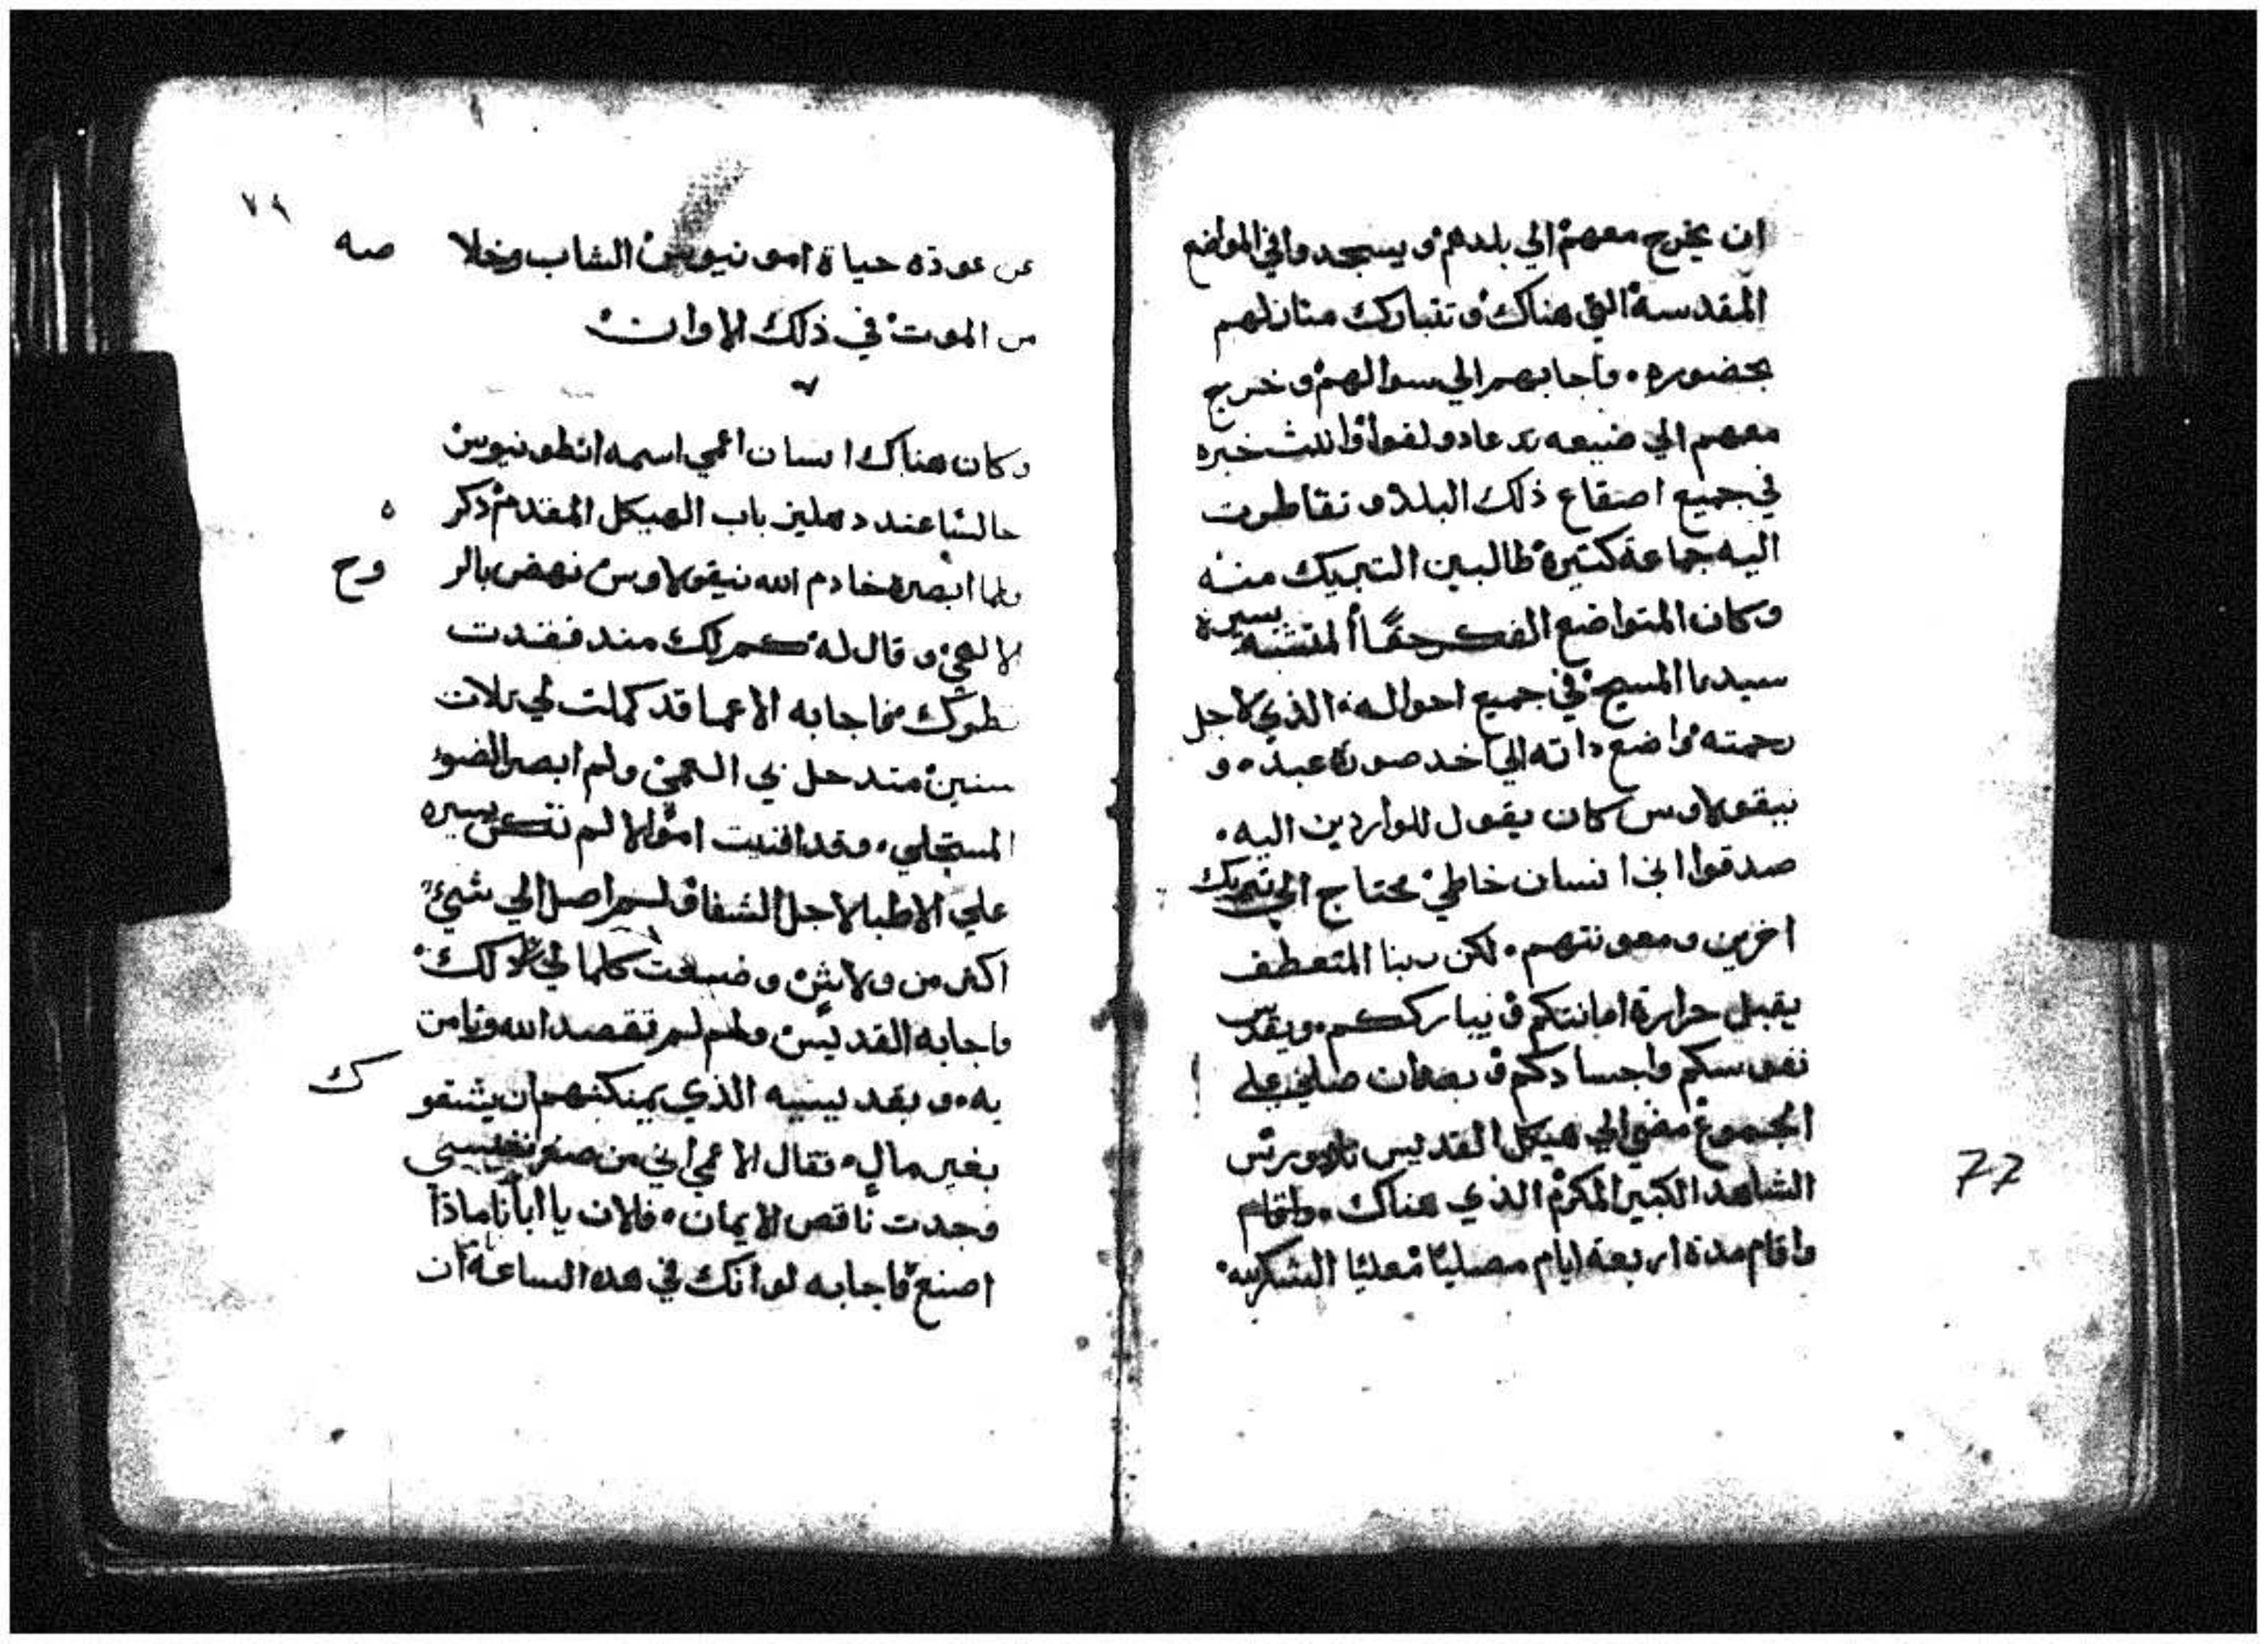 ان يخرج معهم الي بلدهم ويسجدوا في المواضع
المقدسة التي هناك وتتبارك منازلهم
بحضوره. فاجابهم الي سوالهم وخرج
معهم الي ضيعه خبره
في جميع اصقاع ذلك البلاد وتقاطرت
اليه جماعة كتيرة طالبين التبريك منه
وكان المتواضع الفكر حقًا المتشبه بسيرة
سيدنا المسيح في جميع احواله الذي لاجل
رحمته واضع داته الي اخد صورة عبد. و
نيقولاوس كان يقول للواردين اليه.
صدقوا اني انسان خاطي محتاج الي تبريك
اخرين ومعونتهم. لكن ربنا المتعطف
يقبل حرارة امانتكم ويبارككم. ويقدس
نفوسكم واجسادكم وبعد ان صلي علي
الجموع مضي الي هيكل القديس تاودورس
الشاهد الكبير المكرم الذي هناك. واقام
واقام مدة اربعة ايام مصليًا معليًا الشكر لله.
77
٧٩
عن عودة حياة امونيوس الشاب وخلا صه
من الموت في ذلك الاوان
وكان هناك انسان اعمي اسمه انطونيوس
جالسًا عند دهليز باب الهيكل المقدم ذكر ه
فلما ابصره خادم الله نيقولاوس نهض بالر وح
الالهي وقال له كم لك مند فقدت
نطرك فاجابه الاعما قد كملت لي تلات
سنين مند حل بي العمي ولم ابصر الضوء
المستحلي. وقد افنيت اموالا لم تكن يسيره
علي الاطبا لاجل الشفا ولم اصل الي شيء
اكتر من ولاشي وضيعت كلما لي لذلك
فاجابه القديس ولم لم تقصد الله وتامن
به. وبقديسيه الذي يمكنهم ان يشفو ك
بغير مال. فقال الاعمي اني من صغر نفسي
وجدت ناقص الايمان. فالان يا ابانا ماذا
اصنع فاجابه لو انك في هده الساعة ان